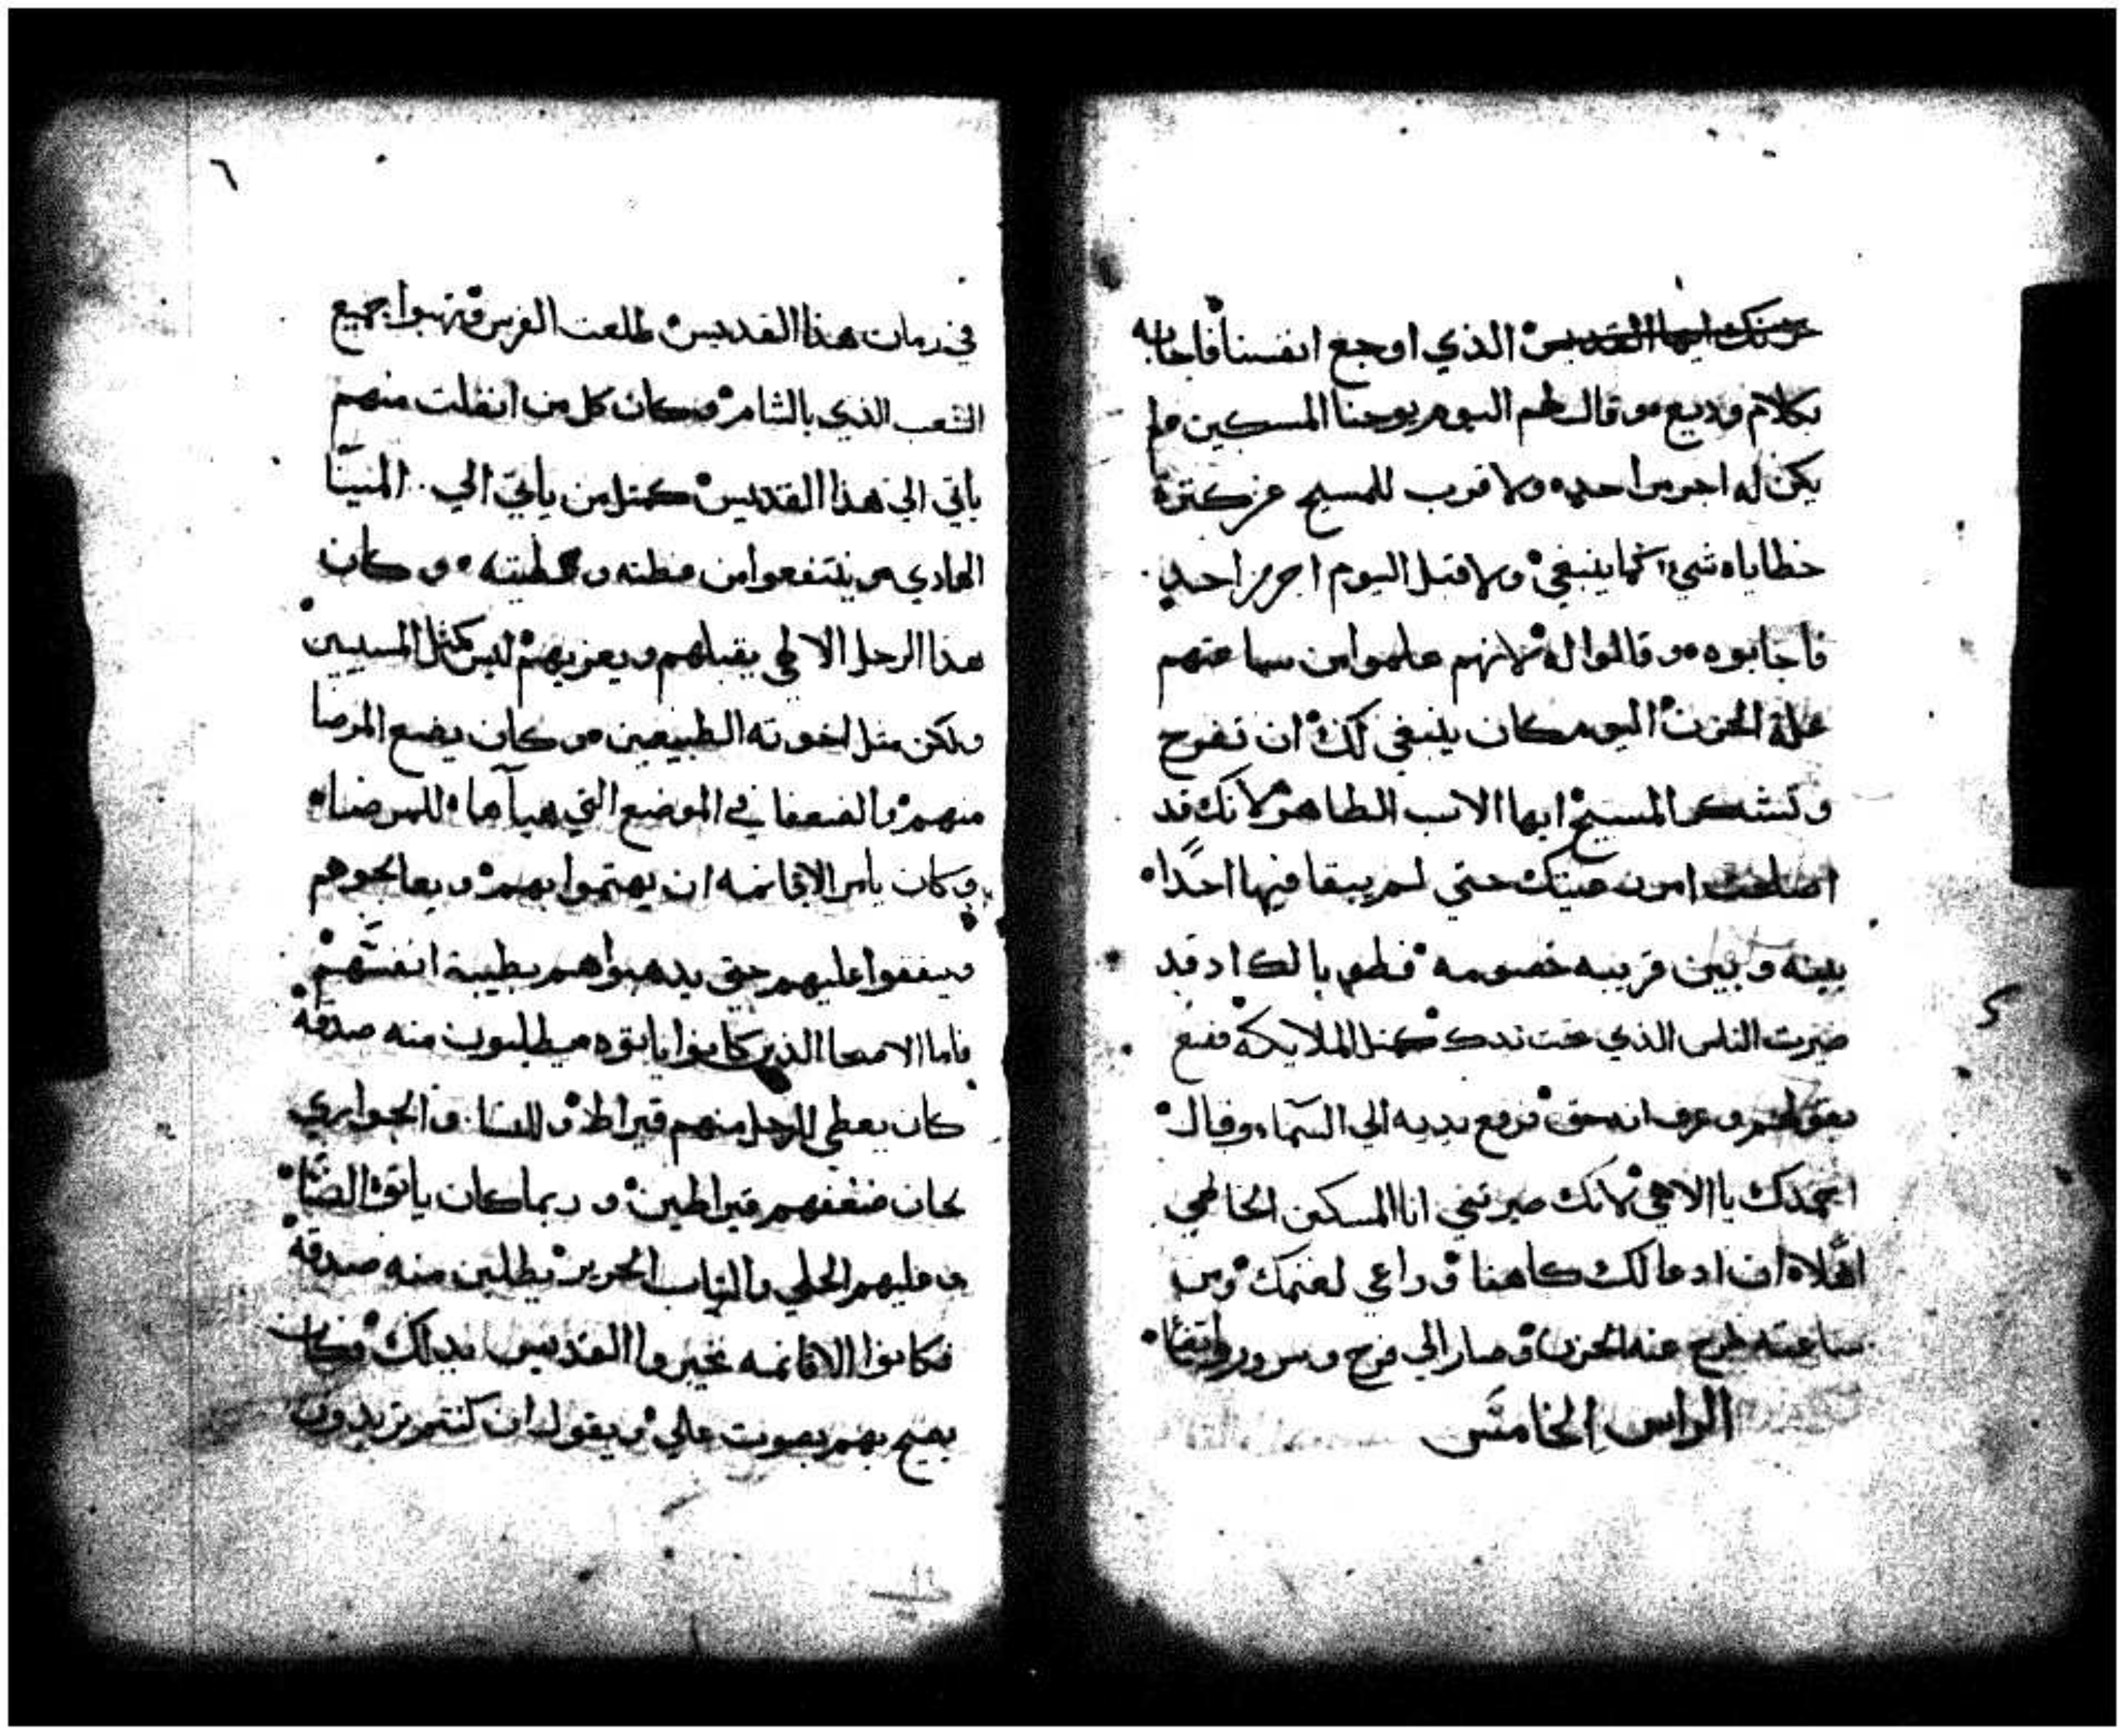 حزنك ايها القديس الذي اوجع انفسنا فاجابه
بكلام وديع وقال لهم اليوم يوحنا المسكين لم
يكن له اجر من احد ولا قرب للمسيح عن كترة
خطاياه شي كما ينبغي ولا قبل اليوم اجر من احد
فاجابوه وقالوا له لانهم علموا من ساعتهم
علة الحزن اليوم كان ينبغي لك ان تفرح
وتشكر المسيح ايها الاب الطاهر لانك قد
اصلحت امر رعيتك حتي لم يبقا فيها احدا
بينه وبين قريبه خصومه قد
صيرت الناس الذي تحت يدك كمثل الملايكة ففنع
بقولهم وعرف انه حق فرفع يديه الي السماء وقال
امجدك يا الاهي لانك صيرتني انا المسكين الخاطي
اهلا ان ادعا لك كاهنا وراعي لغنمك ومن
ساعته طرح عنه الحزن وصار الي فرح وسرور
الراس الخامس
٦
في زمان هذا القديس طلعت الفرس ونهبوا جميع
الشعب الذي بالشام وكان كل من انفلت منهم
ياتي الي هذا القديس كمثل من ياتي الي المينا
الهادي
هذا الرجل الالاهي يقبلهم ويعزيهم ليس كمثل المسبيين
ولكن مثل اخوته الطبيعين وكان يضع المرضا
منهم والضعفا في الموضع التي هيآها للمرضا
وكان يامر الاقانمه ان يهتموا بهم ويعالجوهم
وينفقوا عليهم حتي يدهبوا هم بطيبة انفسهم
فاما الاصحا الذين كانوا ياتوه ويطلبون منه صدقة
كان يعطي للرجل منهم قيراط وللنسا والجواري
كان ضعفهم قيراطين وربما كان ياتوه النسا
وعليهم الحلي والتياب الحرير يطلبن منه صدقة
فكانوا الاقانمه يخبروا القديس بدلك فكان
يصيح بهم بصوت عالي ويقول ان كنتم تريدون